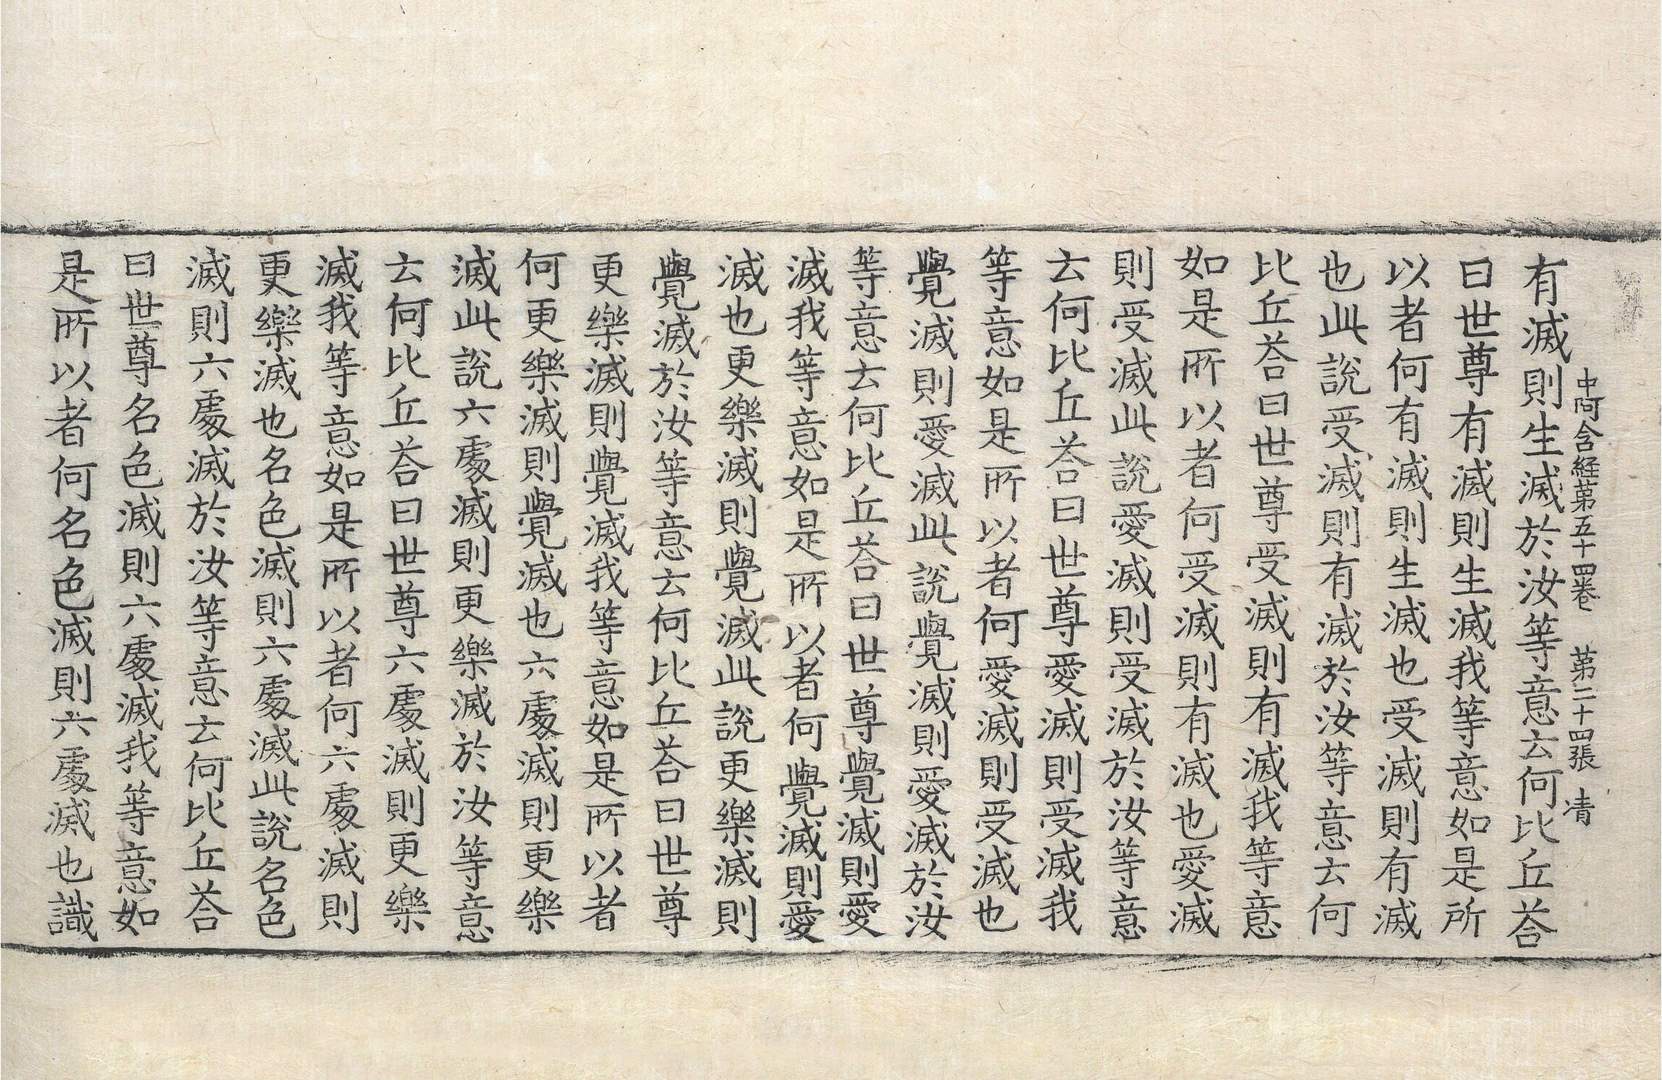 中阿含経第五十四卷 第二十四張 清
有滅則生滅於汝等意云何比丘荅
曰世尊有滅則生滅我等意如是所
以者何有滅則生滅也受滅則有滅
也此說受滅則有滅於汝等意云何
比丘荅曰世尊受滅則有滅我等意
如是所以者何受滅則有滅也愛滅
則受滅此說愛滅則受滅於汝等意
云何比丘荅曰世尊愛滅則受滅我
等意如是所以者何愛滅則受滅也
覺滅則愛滅此說覺滅則愛滅於汝
等意云何比丘荅曰世尊覺滅則愛
滅我等意如是所以者何覺滅則愛
滅也更樂滅則覺滅此說更樂滅則
覺滅於汝等意云何比丘荅曰世尊
更樂滅則覺滅我等意如是所以者
何更樂滅則覺滅也六處滅則更樂
滅此說六處滅則更樂滅於汝等意
云何比丘荅曰世尊六處滅則更樂
滅我等意如是所以者何六處滅則
更樂滅也名色滅則六處滅此說名色
滅則六處滅於汝等意云何比丘荅
曰世尊名色滅則六處滅我等意如
是所以者何名色滅則六處滅也識